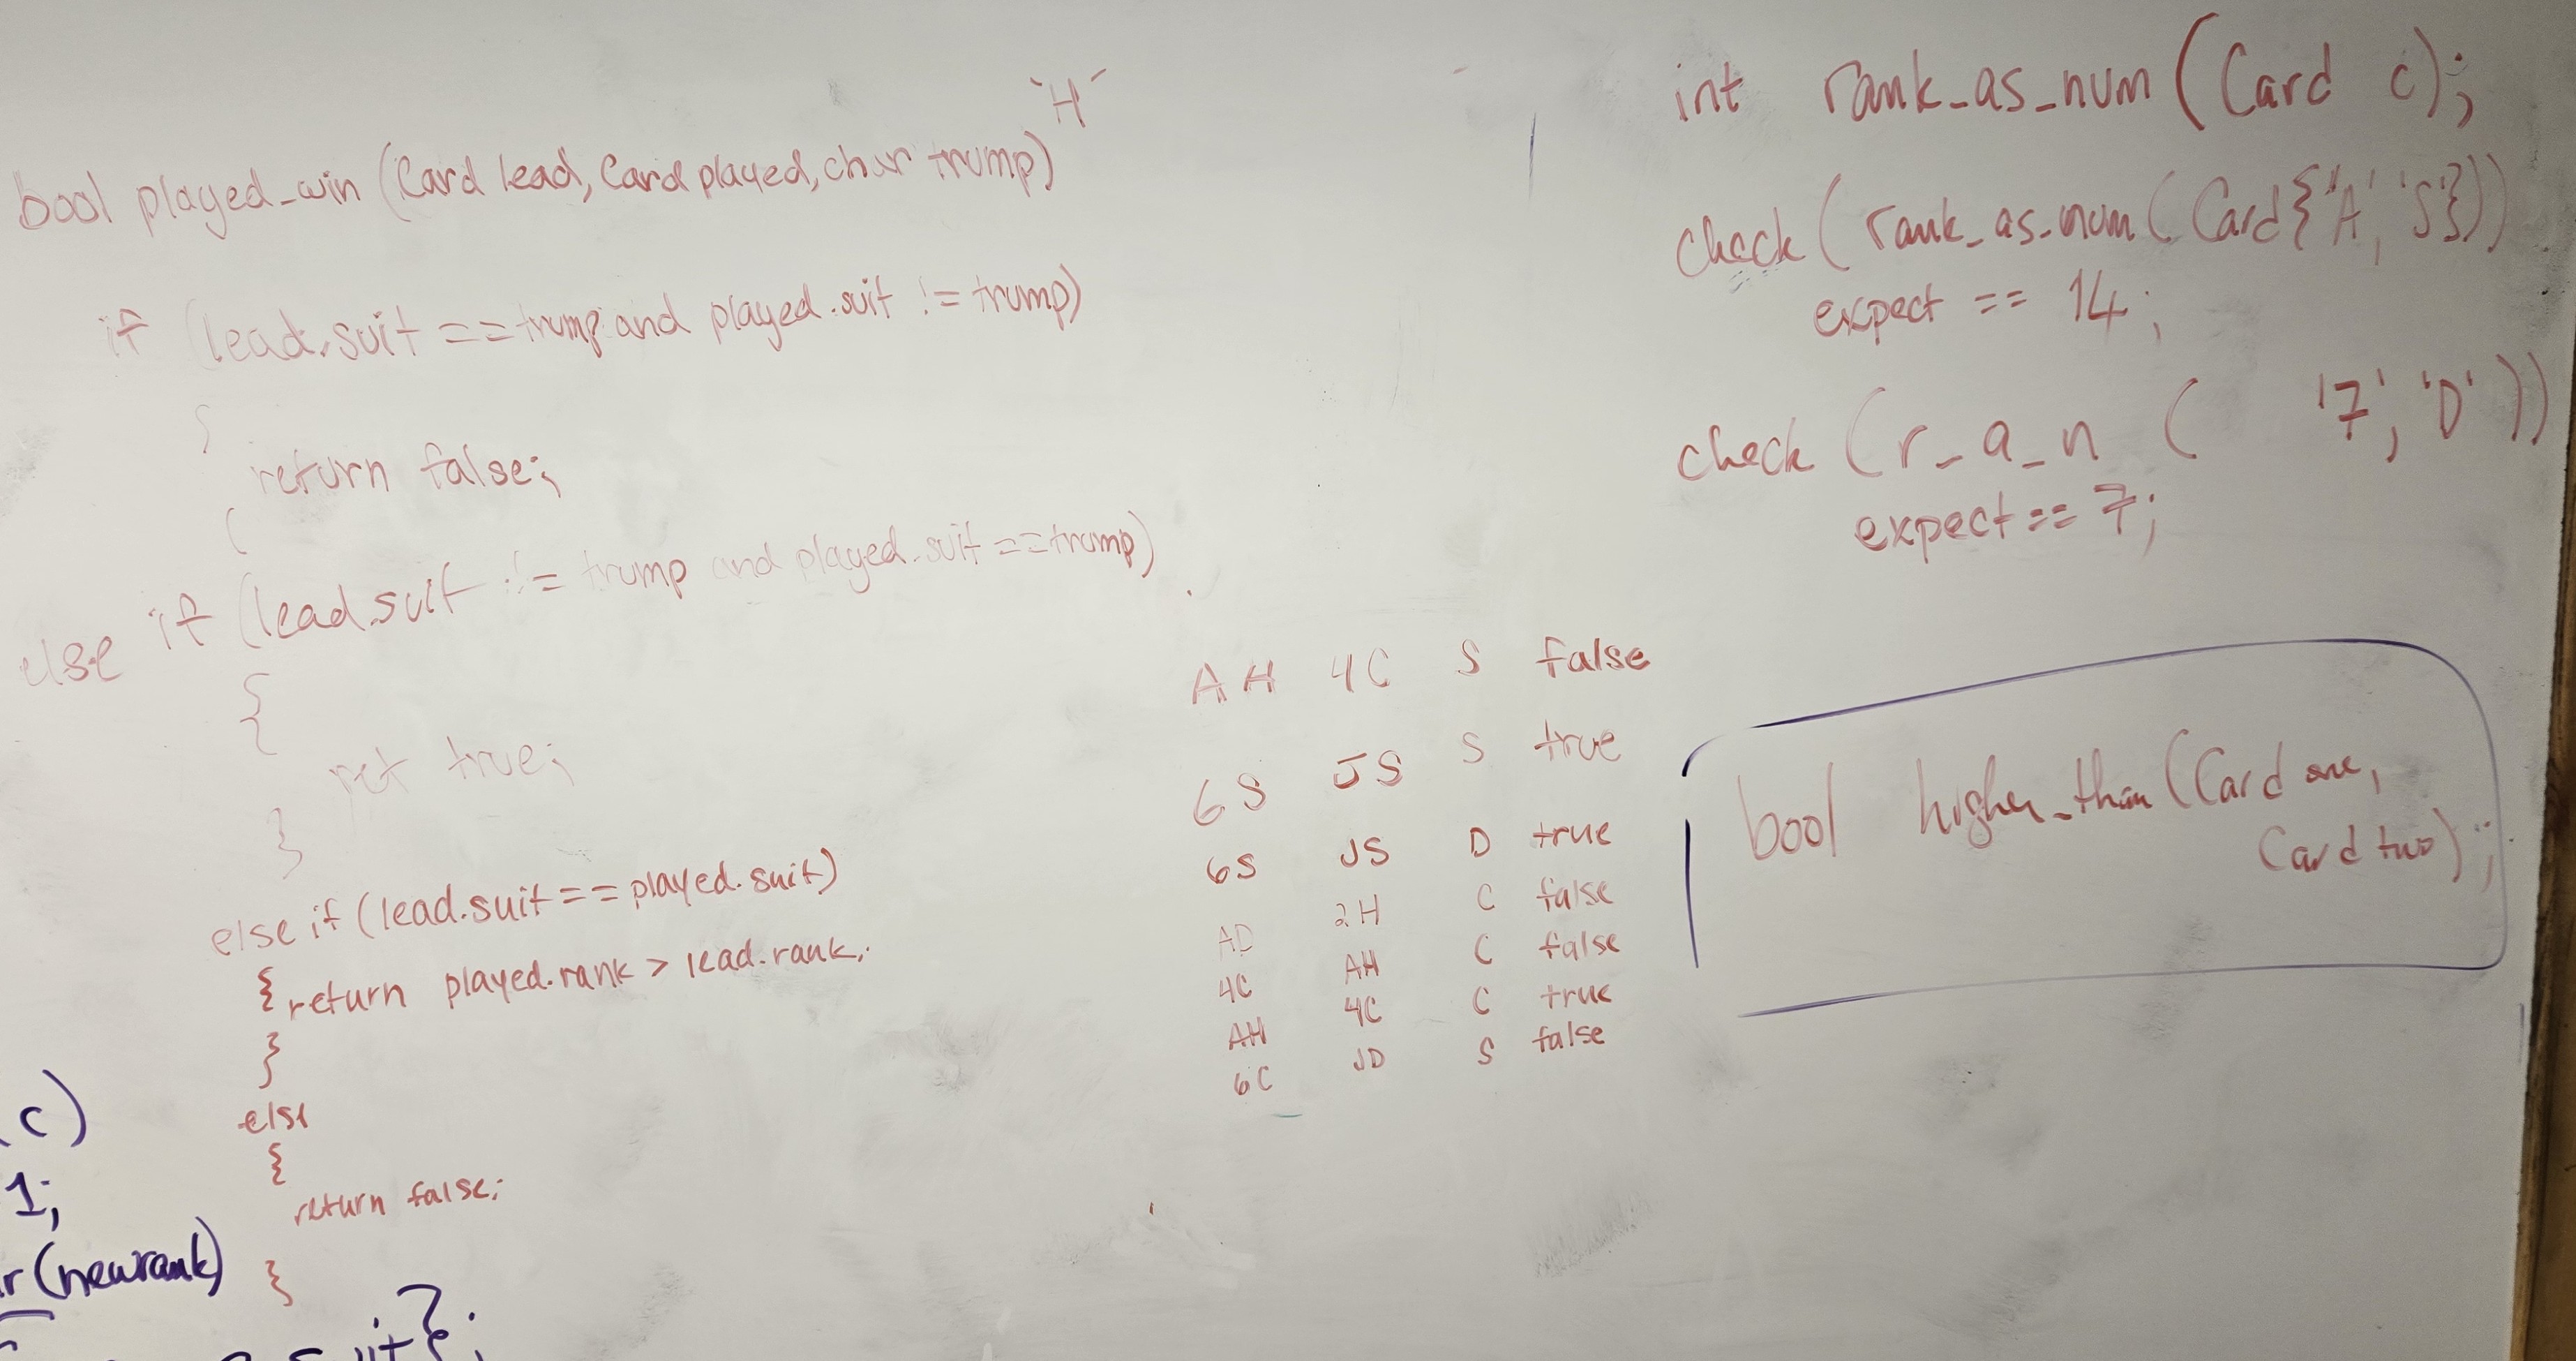 'H'
bool played_win (Card lead, Card played, char trump)
if (lead.suit == trump and played.suit != trump)
{
return false;
(
else if (lead.suit != trump and played.suit == trump)
{
ret true;
}
else if (lead.suit == played.suit)
{ return played.rank > lead.rank;
}
else
{
return false;
}
c)
1;
r(newrank)
suit};
AH 4C S false
6S JS S true
6S JS D true
AD 2H C false
4C AH C false
AH 4C C true
6C JD S false
int rank_as_num (Card c);
check (rank_as_num (Card{'A', 'S'}))
expect == 14;
check (r_a_n ( '7', 'D' ))
expect == 7;
bool higher_than (Card one,
Card two);